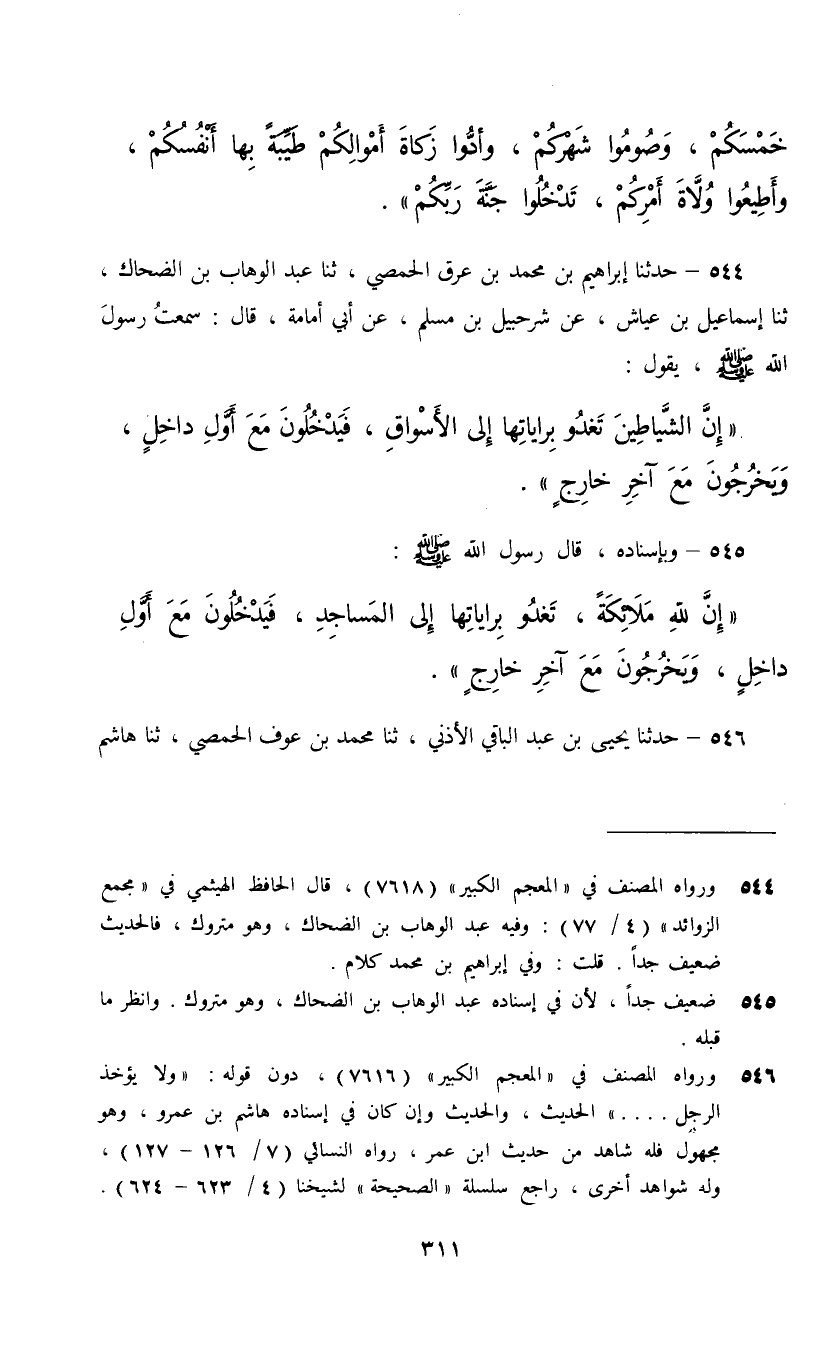 خَمْسَكُمْ ، وَصُومُوا شَهْرَكُمْ ، وأدُّوا زَكاةَ أَمْوالِكُمْ طَيِّبَةً بِها أَنْفُسُكُمْ ،
وأَطِيعُوا وُلَّاةَ أَمْرِكُمْ ، تَدْخُلُوا جَنَّةَ رَبِّكُمْ» .
٥٤٤ – حدثنا إبراهيم بن محمد بن عرق الحمصي ، ثنا عبد الوهاب بن الضحاك ،
ثنا إسماعيل بن عياش ، عن شرحبيل بن مسلم ، عن أبي أمامة ، قال : سمعتُ رسولَ
الله ﷺ ، يقول :
« إِنَّ الشَّياطِينَ تَغدُو بِراياتِها إِلى الأَسْواقِ ، فَيَدْخُلُونَ مَعَ أَوَّلِ داخِلٍ ،
وَيَخرُجُونَ مَعَ آخِرِ خارِجٍ » .
٥٤٥ – وبإسناده ، قال رسول الله ﷺ :
« إِنَّ للهِ مَلَائِكَةً ، تَغدُو بِراياتِها إِلى المَساجِدِ ، فَيَدْخُلُونَ مَعَ أَوَّلِ
داخِلٍ ، وَيَخرُجُونَ مَعَ آخِرِ خارِجٍ » .
٥٤٦ – حدثنا يحيى بن عبد الباقي الأذني ، ثنا محمد بن عوف الحمصي ، ثنا هاشم
٥٤٤ ورواه المصنف في «المعجم الكبير» (٧٦١٨) ، قال الحافظ الهيثمي في «مجمع
الزوائد» (٤ / ٧٧) : وفيه عبد الوهاب بن الضحاك ، وهو متروك ، فالحديث
ضعيف جداً . قلت : وفي إبراهيم بن محمد كلام .
٥٤٥ ضعيف جداً ، لأن في إسناده عبد الوهاب بن الضحاك ، وهو متروك . وانظر ما
قبله .
٥٤٦ ورواه المصنف في «المعجم الكبير» (٧٦١٦) ، دون قوله : «ولا يؤخذ
الرجل ....» الحديث ، والحديث وإن كان في إسناده هاشم بن عمرو ، وهو
مجهول فله شاهد من حديث ابن عمر ، رواه النسائي (٧/ ١٢٦ – ١٢٧) ،
وله شواهد أخرى ، راجع سلسلة «الصحيحة» لشيخنا (٤ / ٦٢٣ – ٦٢٤) .
٣١١